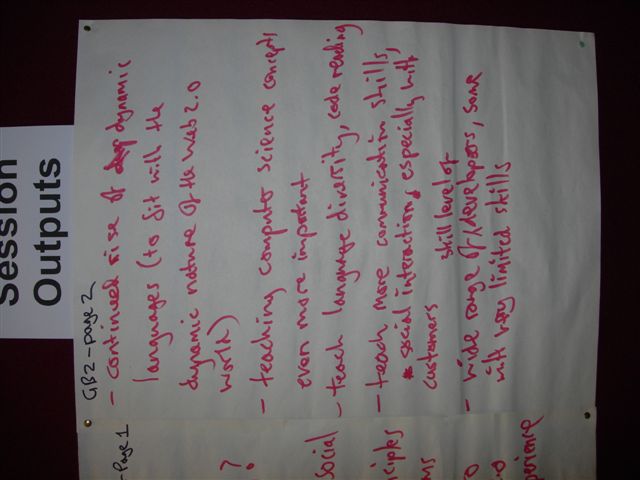 Session
Outputs
GB2 - page 2
- continued rise of dynamic
languages (to fit with the
dynamic nature of the web 2.0
world)
- teaching computer science concepts
even more important
- teach language diversity, code reading
- teach more communication skills,
social interaction, especially with
customers
- wide range of skill level of developers, some
with very limited skills
- Page 1
?
social